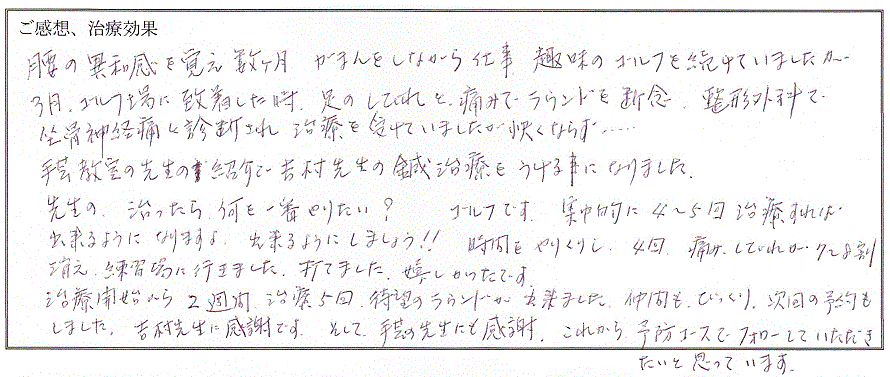 ご感想、治療効果
腰の異和感を覚え数ケ月 がまんをしながら仕事 趣味のゴルフを続けていましたが…
3月、ゴルフ場に到着した時、足のしびれと、痛みでラウンドを断念、整形外科で
坐骨神経痛と診断され 治療を受けていましたが快くならず……
手芸教室の先生の紹介で吉村先生の鍼治療をうける事になりました。
先生の、治ったら何を一番やりたい? ゴルフです。集中的に4~5回治療すれば
出来るようになりますよ。出来るようにしましょう!! 時間をやりくりし、4回、痛み、しびれが7~8割
消え、練習場に行きました、打てました、嬉しかったです。
治療開始から2週間、治療5回、待望のラウンドが出来ました。仲間も、びっくり、次回の予約も
しました。吉村先生に感謝です。そして、手芸の先生にも感謝。これから予防コースでフォローしていただき
たいと思っています。